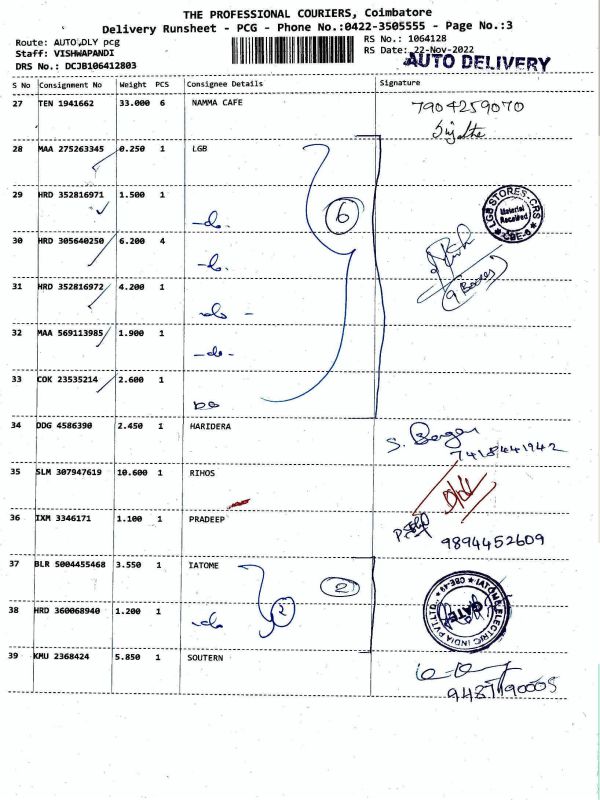 THE PROFESSIONAL COURIERS, Coimbatore
Delivery Runsheet - PCG - Phone No.:0422-3505555 - Page No.:3
Route: AUTO,DLY pcg
RS No.: 1064128
Staff: VISHWAPANDI
RS Date: 22-Nov-2022
DRS No.: DCJB106412803
AUTO DELIVERY
S No Consignment No Weight PCS Consignee Details Signature
27 TEN 1941662 33.000 6 NAMMA CAFE 7904259070
28 MAA 275263345 0.250 1 LGB
29 HRD 352816971 1.500 1 -do-
6
LGB STORES-CRS
Material Received
CBE-6
30 HRD 305640250 6.200 4 -do-
9 Boxes
31 HRD 352816972 4.200 1 -do-
32 MAA 569113985 1.900 1 -do-
33 COK 23535214 2.600 1 DO
34 DDG 4586390 2.450 1 HARIDERA
35 SLM 307947619 10.600 1 RIHOS
36 IXM 3346171 1.100 1 PRADEEP 9894452609
37 BLR 5004455468 3.550 1 IATOME
2
38 HRD 360068940 1.200 1 -do- 2
IATOME ELECTRIC INDIA PVT LTD CBE-49
GATE
39 KMU 2368424 5.850 1 SOUTERN